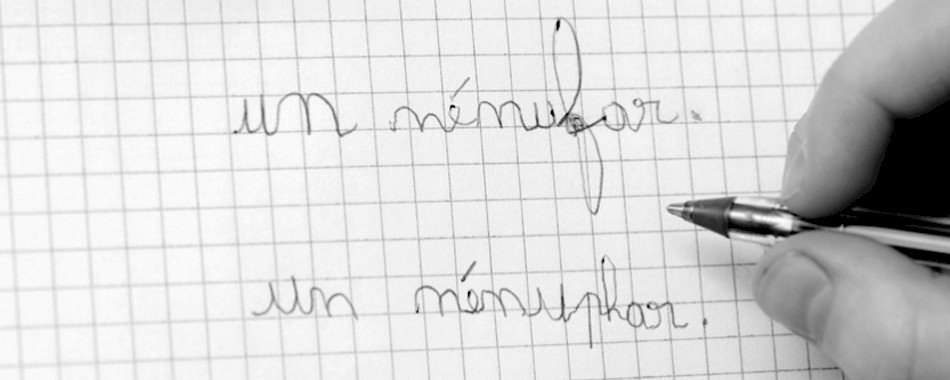 un nénufar.
un nénuphar.